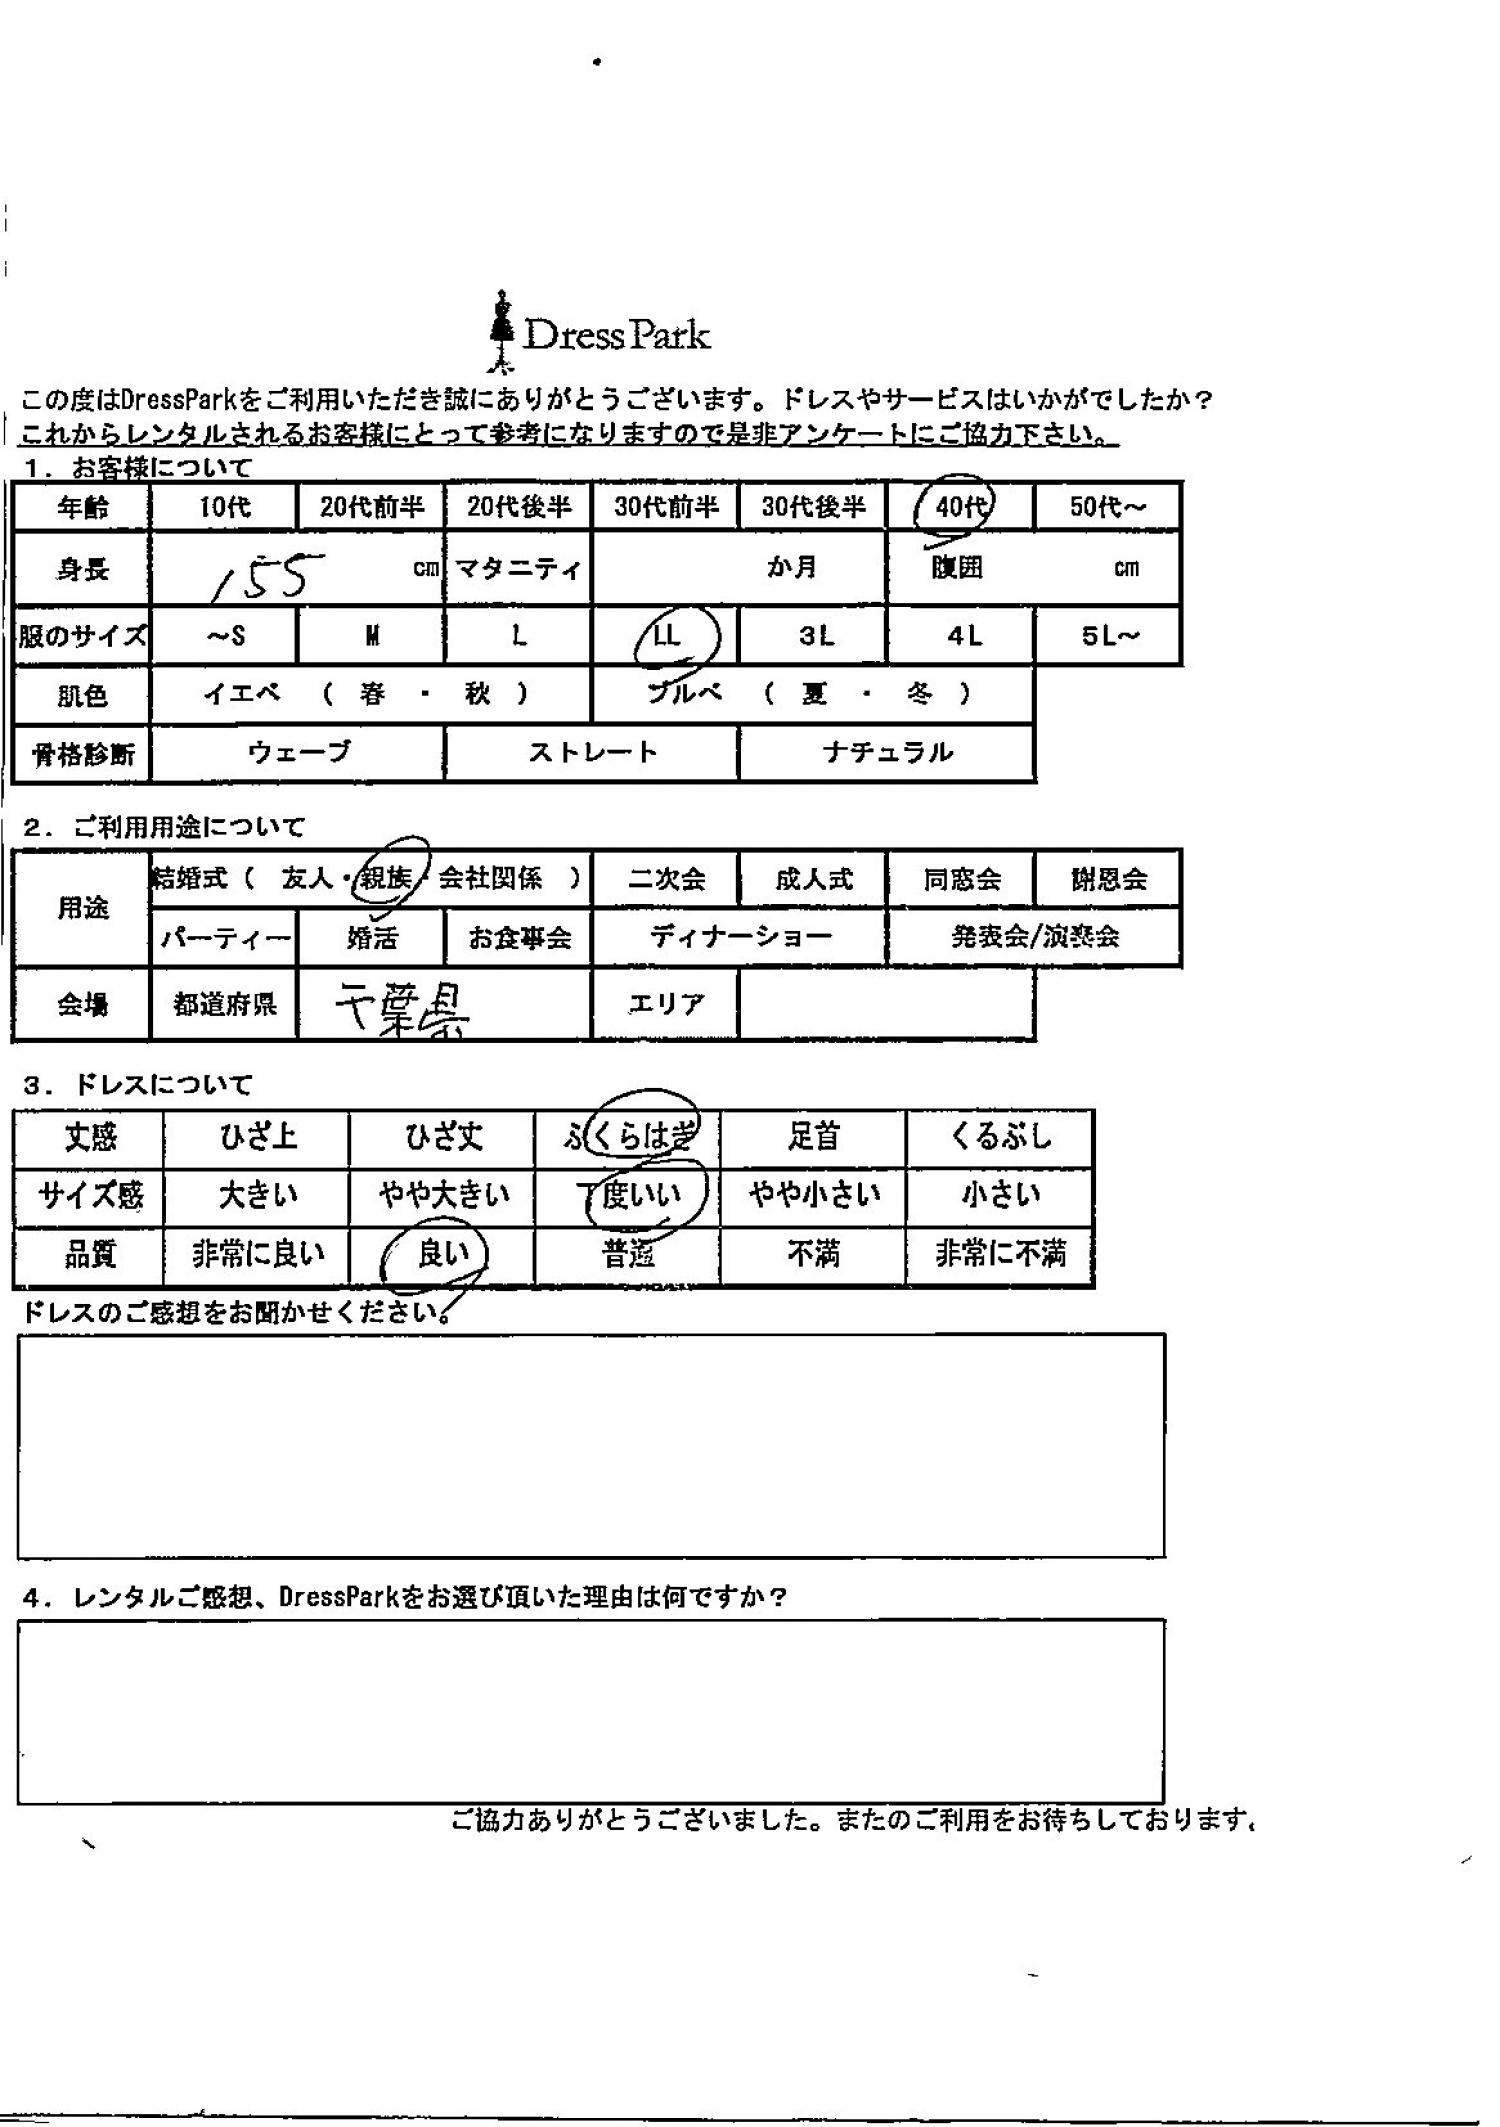 DressPark
この度はDressParkをご利用いただき誠にありがとうございます。ドレスやサービスはいかがでしたか？
これからレンタルされるお客様にとって参考になりますので是非アンケートにご協力下さい。
1．お客様について
年齢 10代 20代前半 20代後半 30代前半 30代後半 40代 50代～
身長 155 cm マタニティ か月 腹囲 cm
服のサイズ ～S M L LL 3L 4L 5L～
肌色 イエベ （ 春 ・ 秋 ） ブルベ （ 夏 ・ 冬 ）
骨格診断 ウェーブ ストレート ナチュラル
2．ご利用用途について
用途 結婚式（ 友人・親族・会社関係 ） 二次会 成人式 同窓会 謝恩会
パーティー 婚活 お食事会 ディナーショー 発表会/演奏会
会場 都道府県 千葉県 エリア
3．ドレスについて
丈感 ひざ上 ひざ丈 ふくらはぎ 足首 くるぶし
サイズ感 大きい やや大きい 丁度いい やや小さい 小さい
品質 非常に良い 良い 普通 不満 非常に不満
ドレスのご感想をお聞かせください。
4．レンタルご感想、DressParkをお選び頂いた理由は何ですか？
ご協力ありがとうございました。またのご利用をお待ちしております。